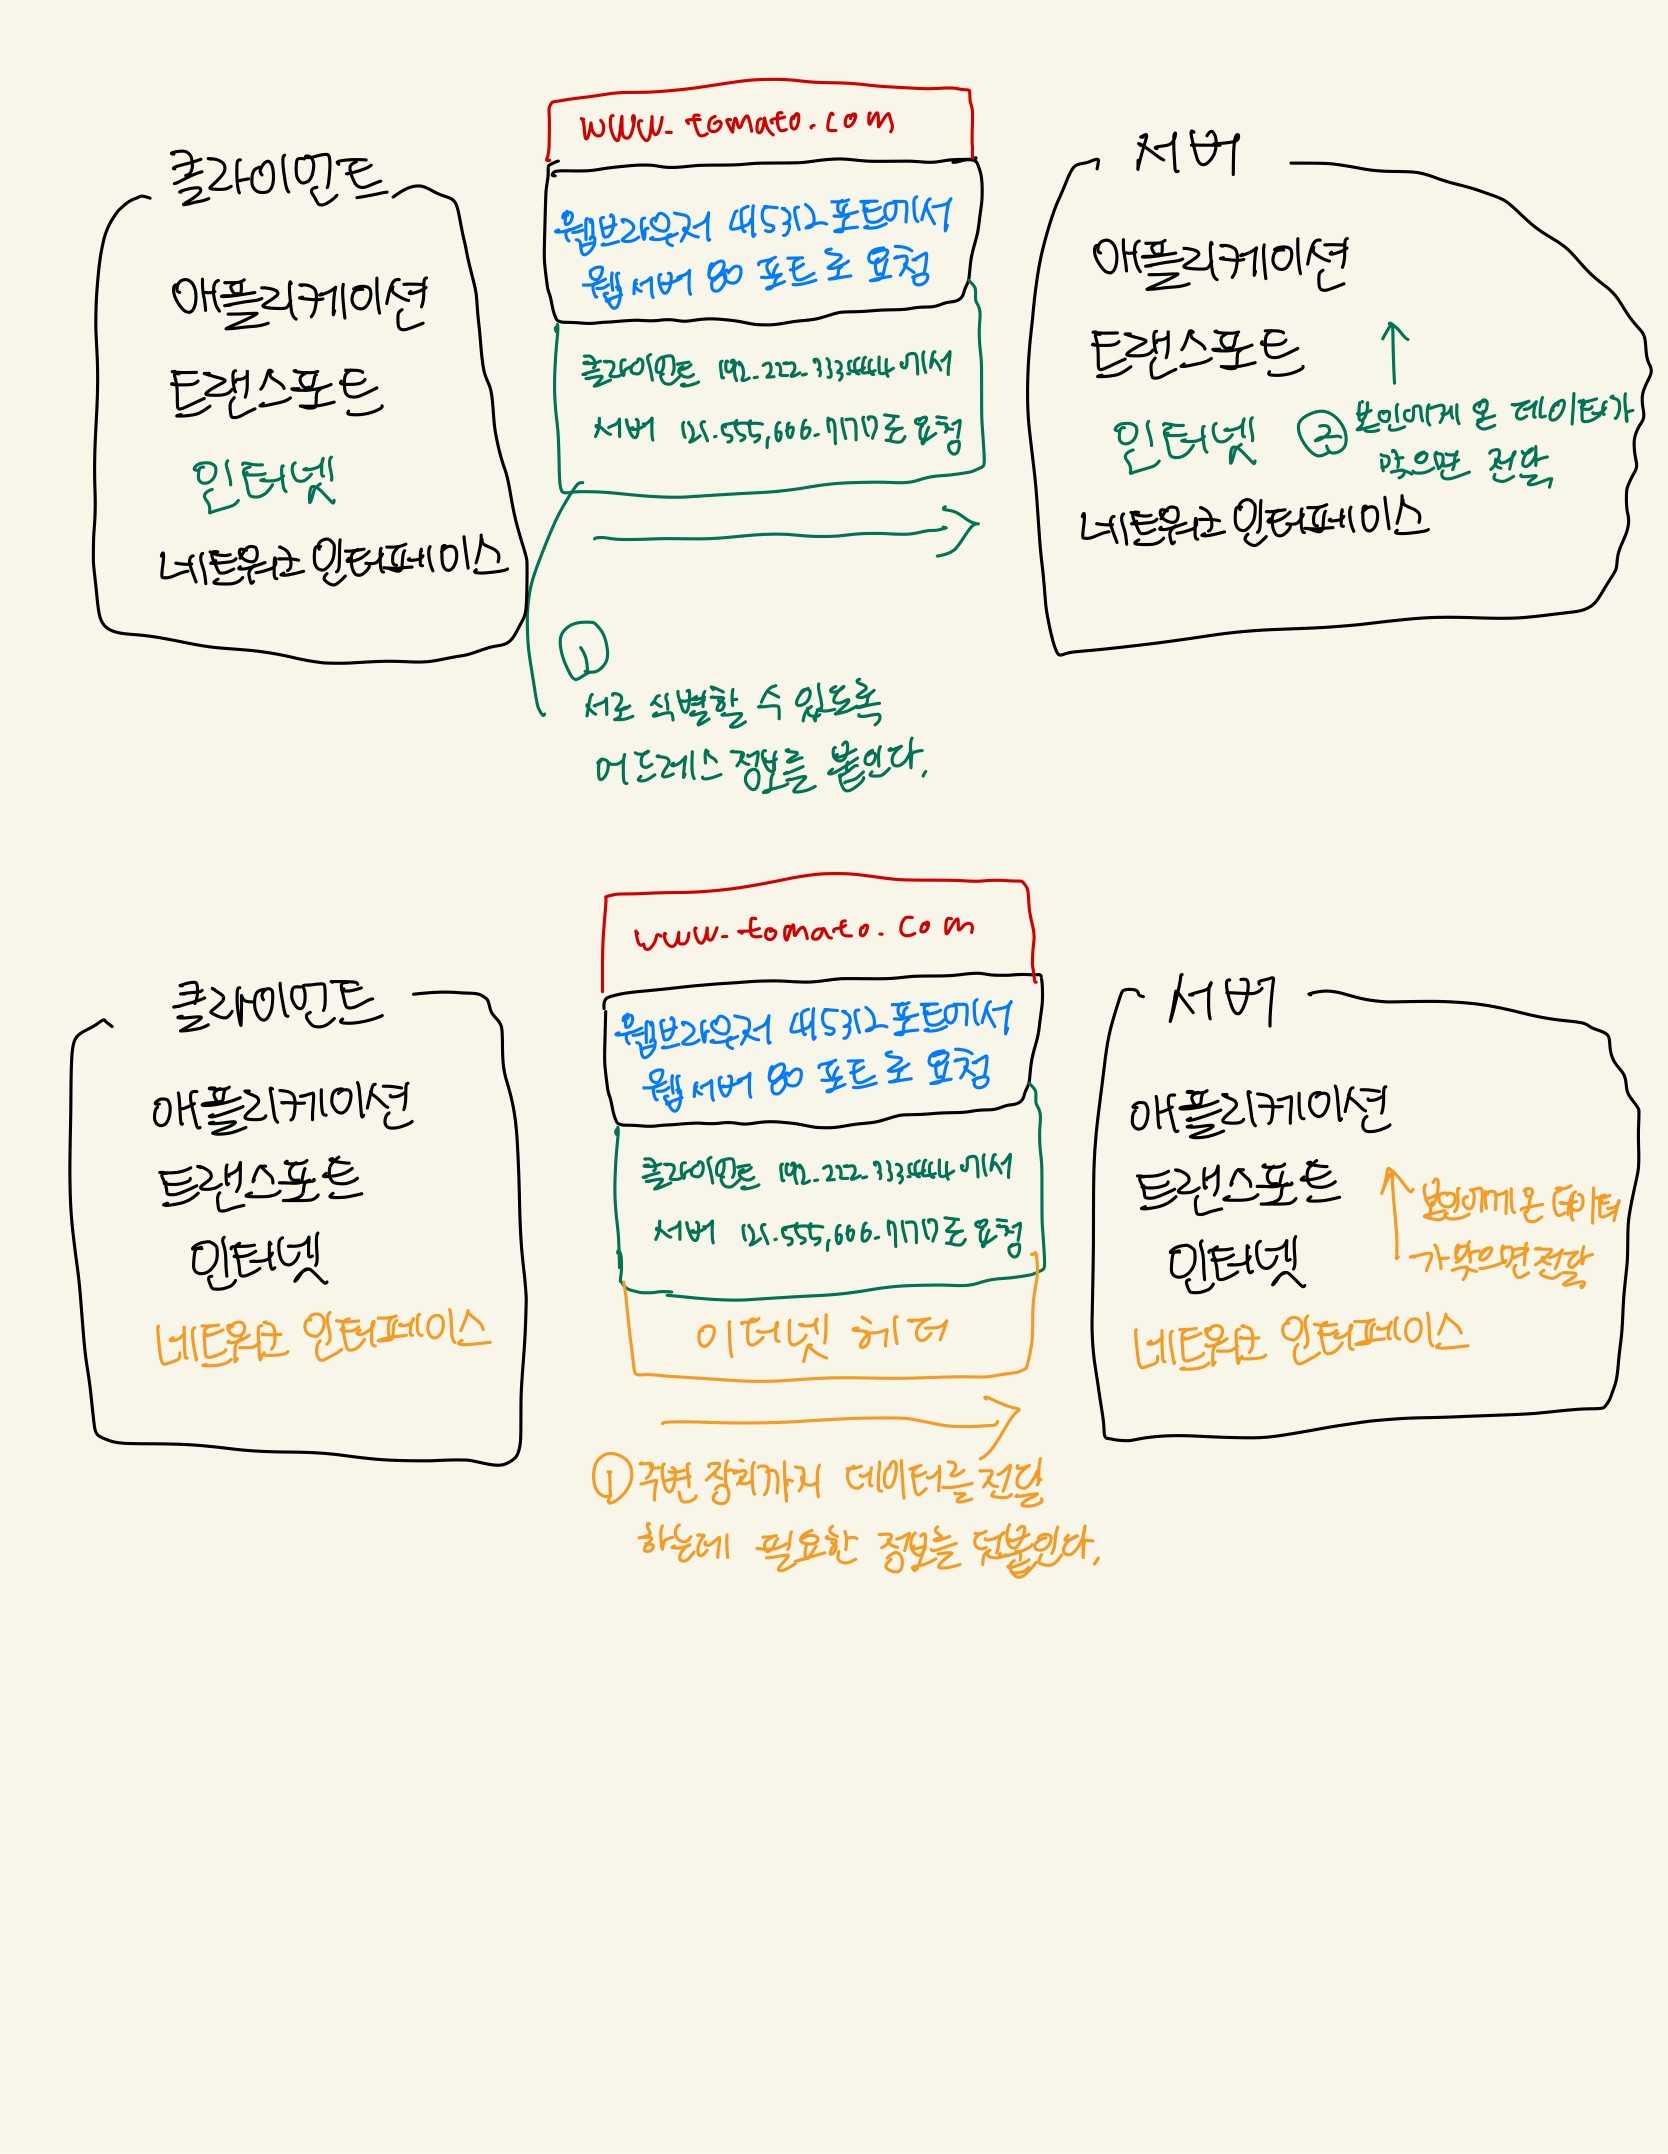 www.tomato.com
클라이언트
애플리케이션
트랜스포트
인터넷
네트워크 인터페이스
웹브라우저 45312 포트에서
웹 서버 80 포트로 요청
클라이언트 192.222.333.444에서
서버 125.555,666.777로 요청
서버
애플리케이션
트랜스포트
인터넷
② 본인에게 온 데이터가
맞으면 전달
네트워크 인터페이스
①
서로 식별할 수 있도록
어드레스 정보를 붙인다.
www.tomato.com
클라이언트
애플리케이션
트랜스포트
인터넷
네트워크 인터페이스
웹브라우저 45312 포트에서
웹 서버 80 포트로 요청
클라이언트 192.222.333.444에서
서버 125.555,666.777로 요청
이더넷 헤더
서버
애플리케이션
트랜스포트
인터넷
네트워크 인터페이스
본인에게 온 데이터
가 맞으면 전달
① 주변 장치까지 데이터를 전달
하는데 필요한 정보를 덧붙인다.